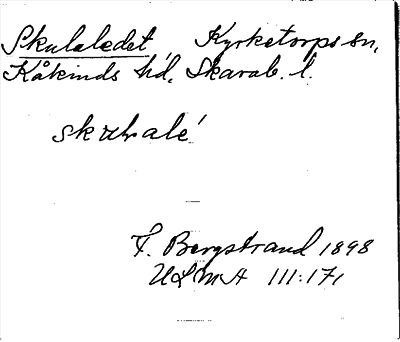 Skulaledet, Kyrketorps sn,
Kåkinds hd, Skarab. l.
F. Bergstrand 1898
ULMA 111:171